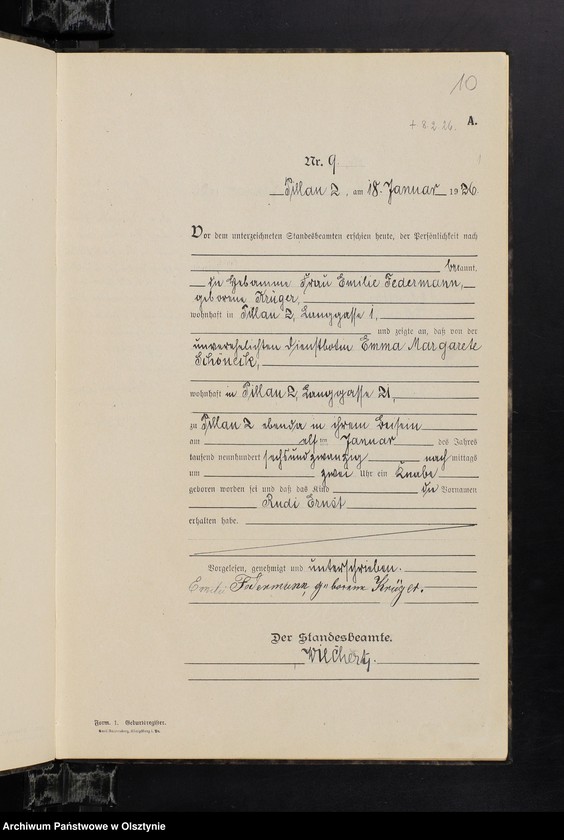 10
+ 8.2.26. A.
Nr. 9
Pillau 2, am 18. Januar 1926.
Vor dem unterzeichneten Standesbeamten erschien heute, der Persönlichkeit nach
bekannt,
die Hebamme Frau Emilie Federmann,
geborene Krüger,
wohnhaft in Pillau 2, Langgasse 1,
und zeigte an, daß von der
unverehelichten Dienstbotin Emma Margarete
Schöneik,
wohnhaft in Pillau 2, Langgasse 21,
zu Pillau 2 ebenda in ihrem Beisein
am elften Januar des Jahres
tausend neunhundert sechsundzwanzig nachmittags
um zwei Uhr ein Knabe
geboren worden sei und daß das Kind die Vornamen
Rudi Ernst
erhalten habe.
Vorgelesen, genehmigt und unterschrieben.
Emilie Federmann, geborene Krüger.
Der Standesbeamte.
Form. 1. Geburtsregister.
Archiwum Państwowe w Olsztynie